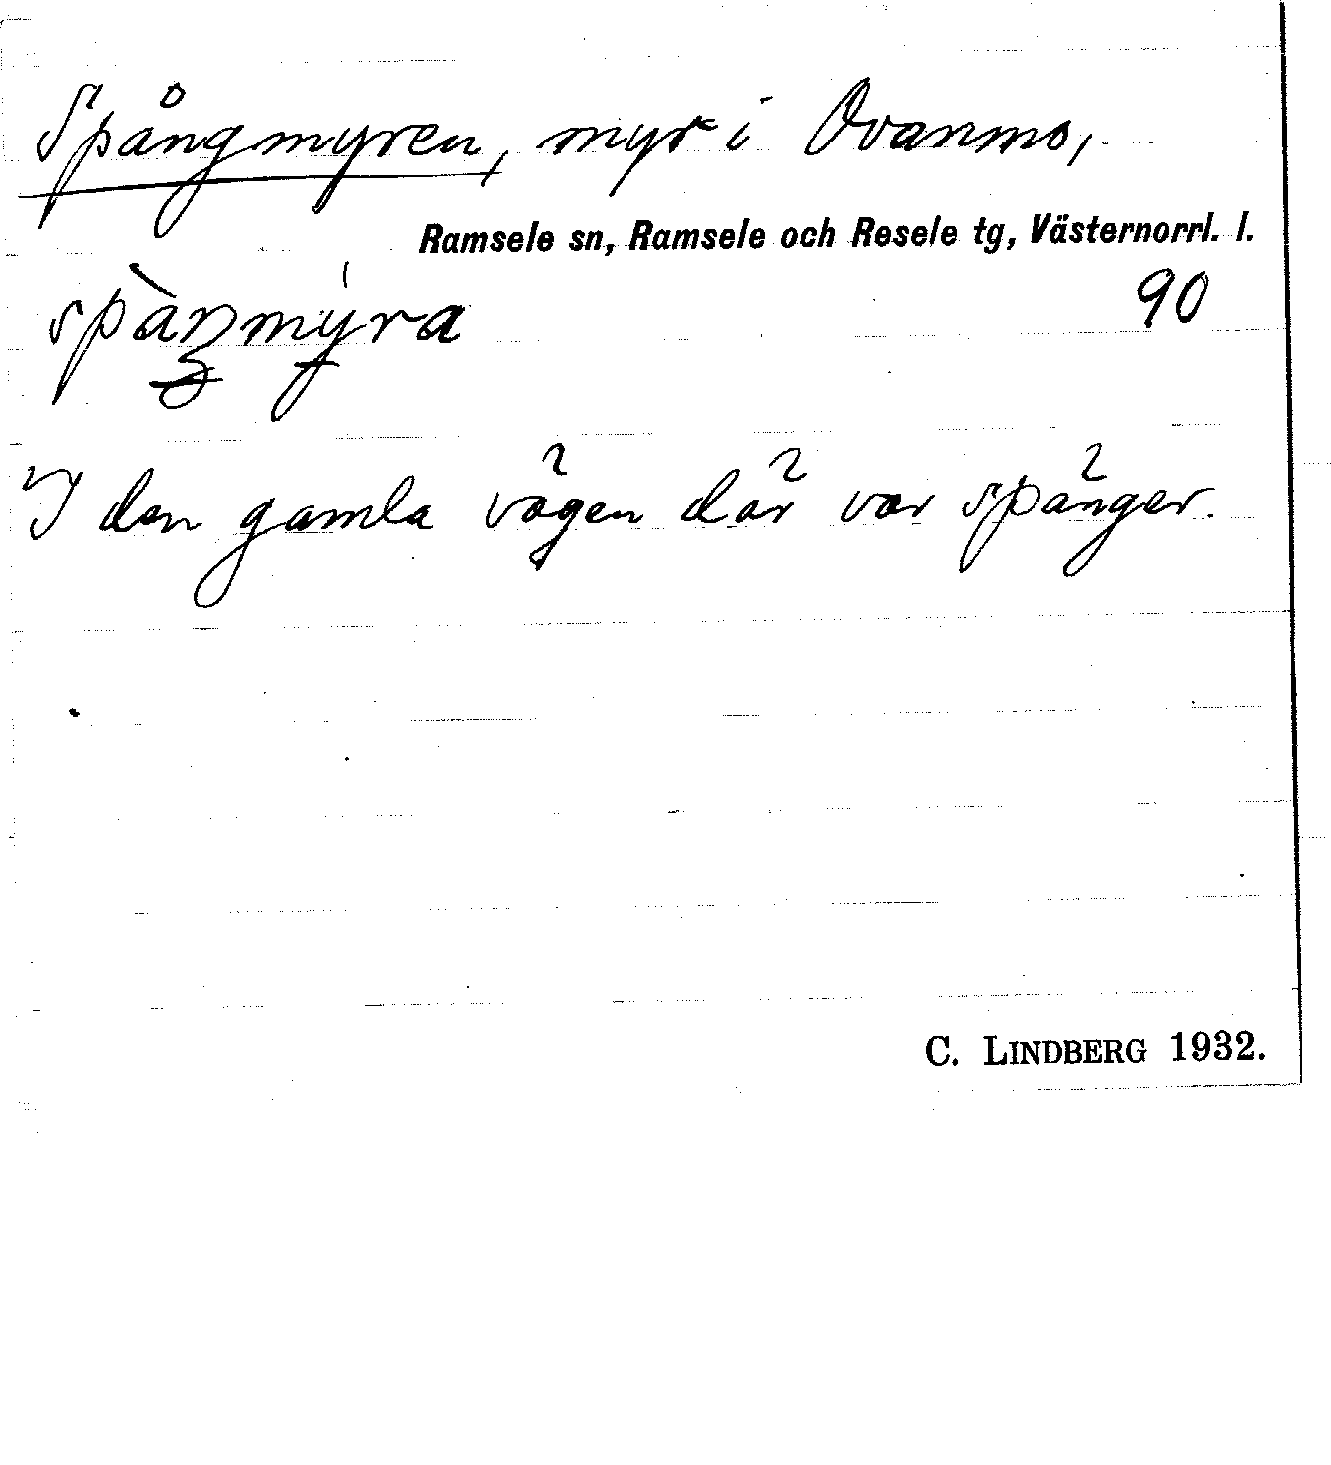 Spångmyren, myr i Ovanmo,
Ramsele sn, Ramsele och Resele tg, Västernorrl. l.
90
I den gamla vägen där var spänger.
C. LINDBERG 1932.